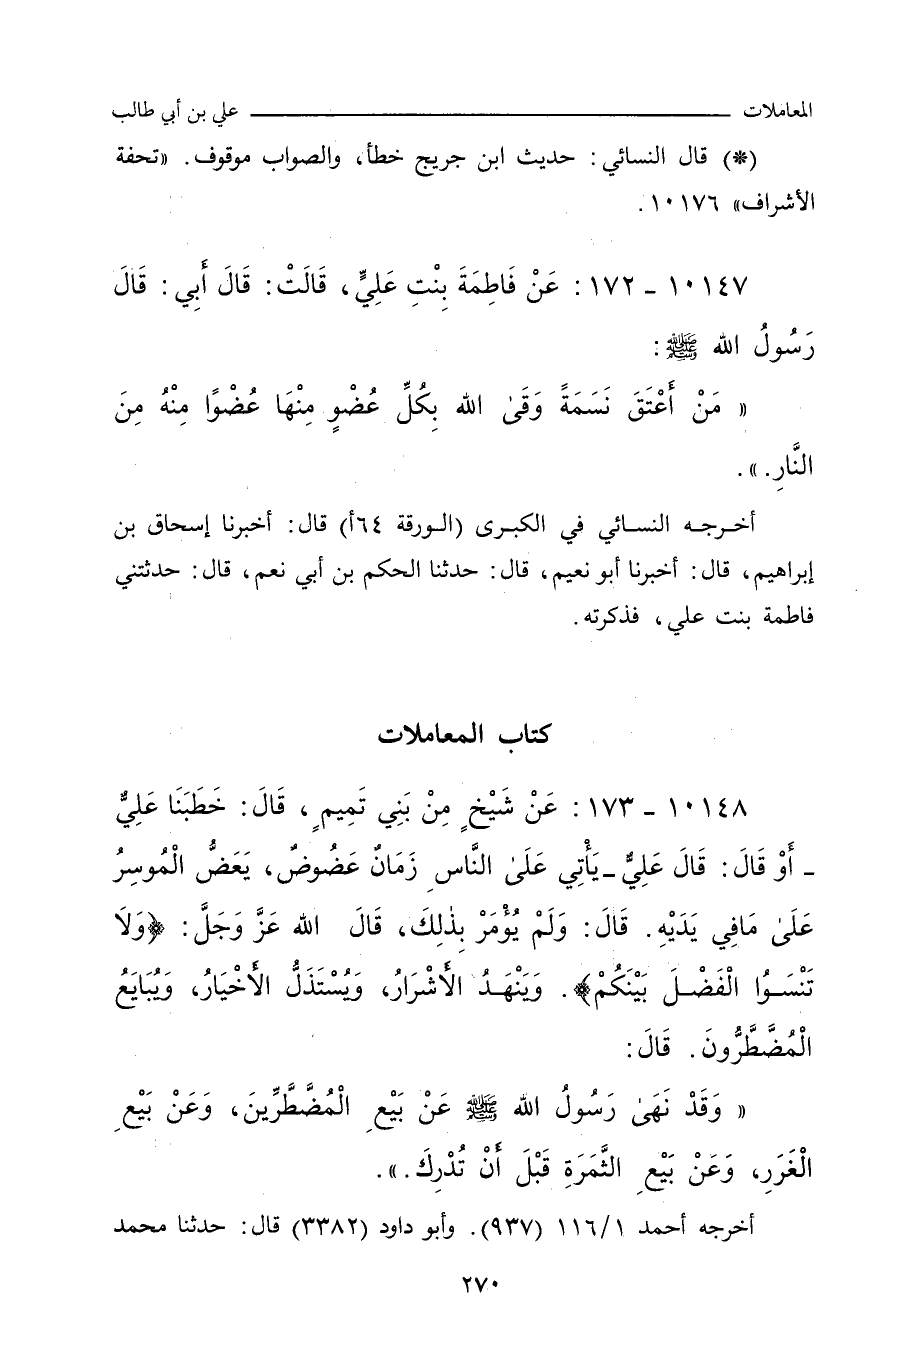 المعاملات ـــــــــــــــــــــ علي بن أبي طالب
(*) قال النسائي: حديث ابن جريج خطأ، والصواب موقوف. «تحفة
الأشراف» ١٠١٧٦.
١٠١٤٧ - ١٧٢: عَنْ فَاطِمَةَ بِنْتِ عَلِيٍّ، قَالَتْ: قَالَ أَبِي: قَالَ
رَسُولُ الله ﷺ:
« مَنْ أَعْتَقَ نَسَمَةً وَقَىٰ الله بِكُلِّ عُضْوٍ مِنْهَا عُضْوًا مِنْهُ مِنَ
النَّارِ.».
أخرجه النسائي في الكبرى (الورقة ٦٤أ) قال: أخبرنا إسحاق بن
إبراهيم، قال: أخبرنا أبو نعيم، قال: حدثنا الحكم بن أبي نعم، قال: حدثتني
فاطمة بنت علي، فذكرته.
كتاب المعاملات
١٠١٤٨ - ١٧٣: عَنْ شَيْخٍ مِنْ بَنِي تَمِيمٍ، قَالَ: خَطَبَنَا عَلِيٌّ
- أَوْ قَالَ: قَالَ عَلِيٌّ - يَأْتِي عَلَىٰ النَّاسِ زَمَانٌ عَضُوضٌ، يَعَضُّ الْمُوسِرُ
عَلَىٰ مَافِي يَدَيْهِ. قَالَ: وَلَمْ يُؤْمَرْ بِذٰلِكَ، قَالَ الله عَزَّ وَجَلَّ: ﴿وَلَا
تَنْسَوُا الْفَضْلَ بَيْنَكُمْ﴾. وَيَنْهَدُ الأَشْرَارُ، وَيُسْتَذَلُّ الأَخْيَارُ، وَيُبَايَعُ
الْمُضْطَّرُّونَ. قَالَ:
« وَقَدْ نَهَىٰ رَسُولُ الله ﷺ عَنْ بَيْعِ الْمُضْطَّرِّينَ، وَعَنْ بَيْعِ
الْغَرَرِ، وَعَنْ بَيْعِ الثَّمَرَةِ قَبْلَ أَنْ تُدْرِكَ.».
أخرجه أحمد ١/١١٦ (٩٣٧). وأبو داود (٣٣٨٢) قال: حدثنا محمد
٢٧٠